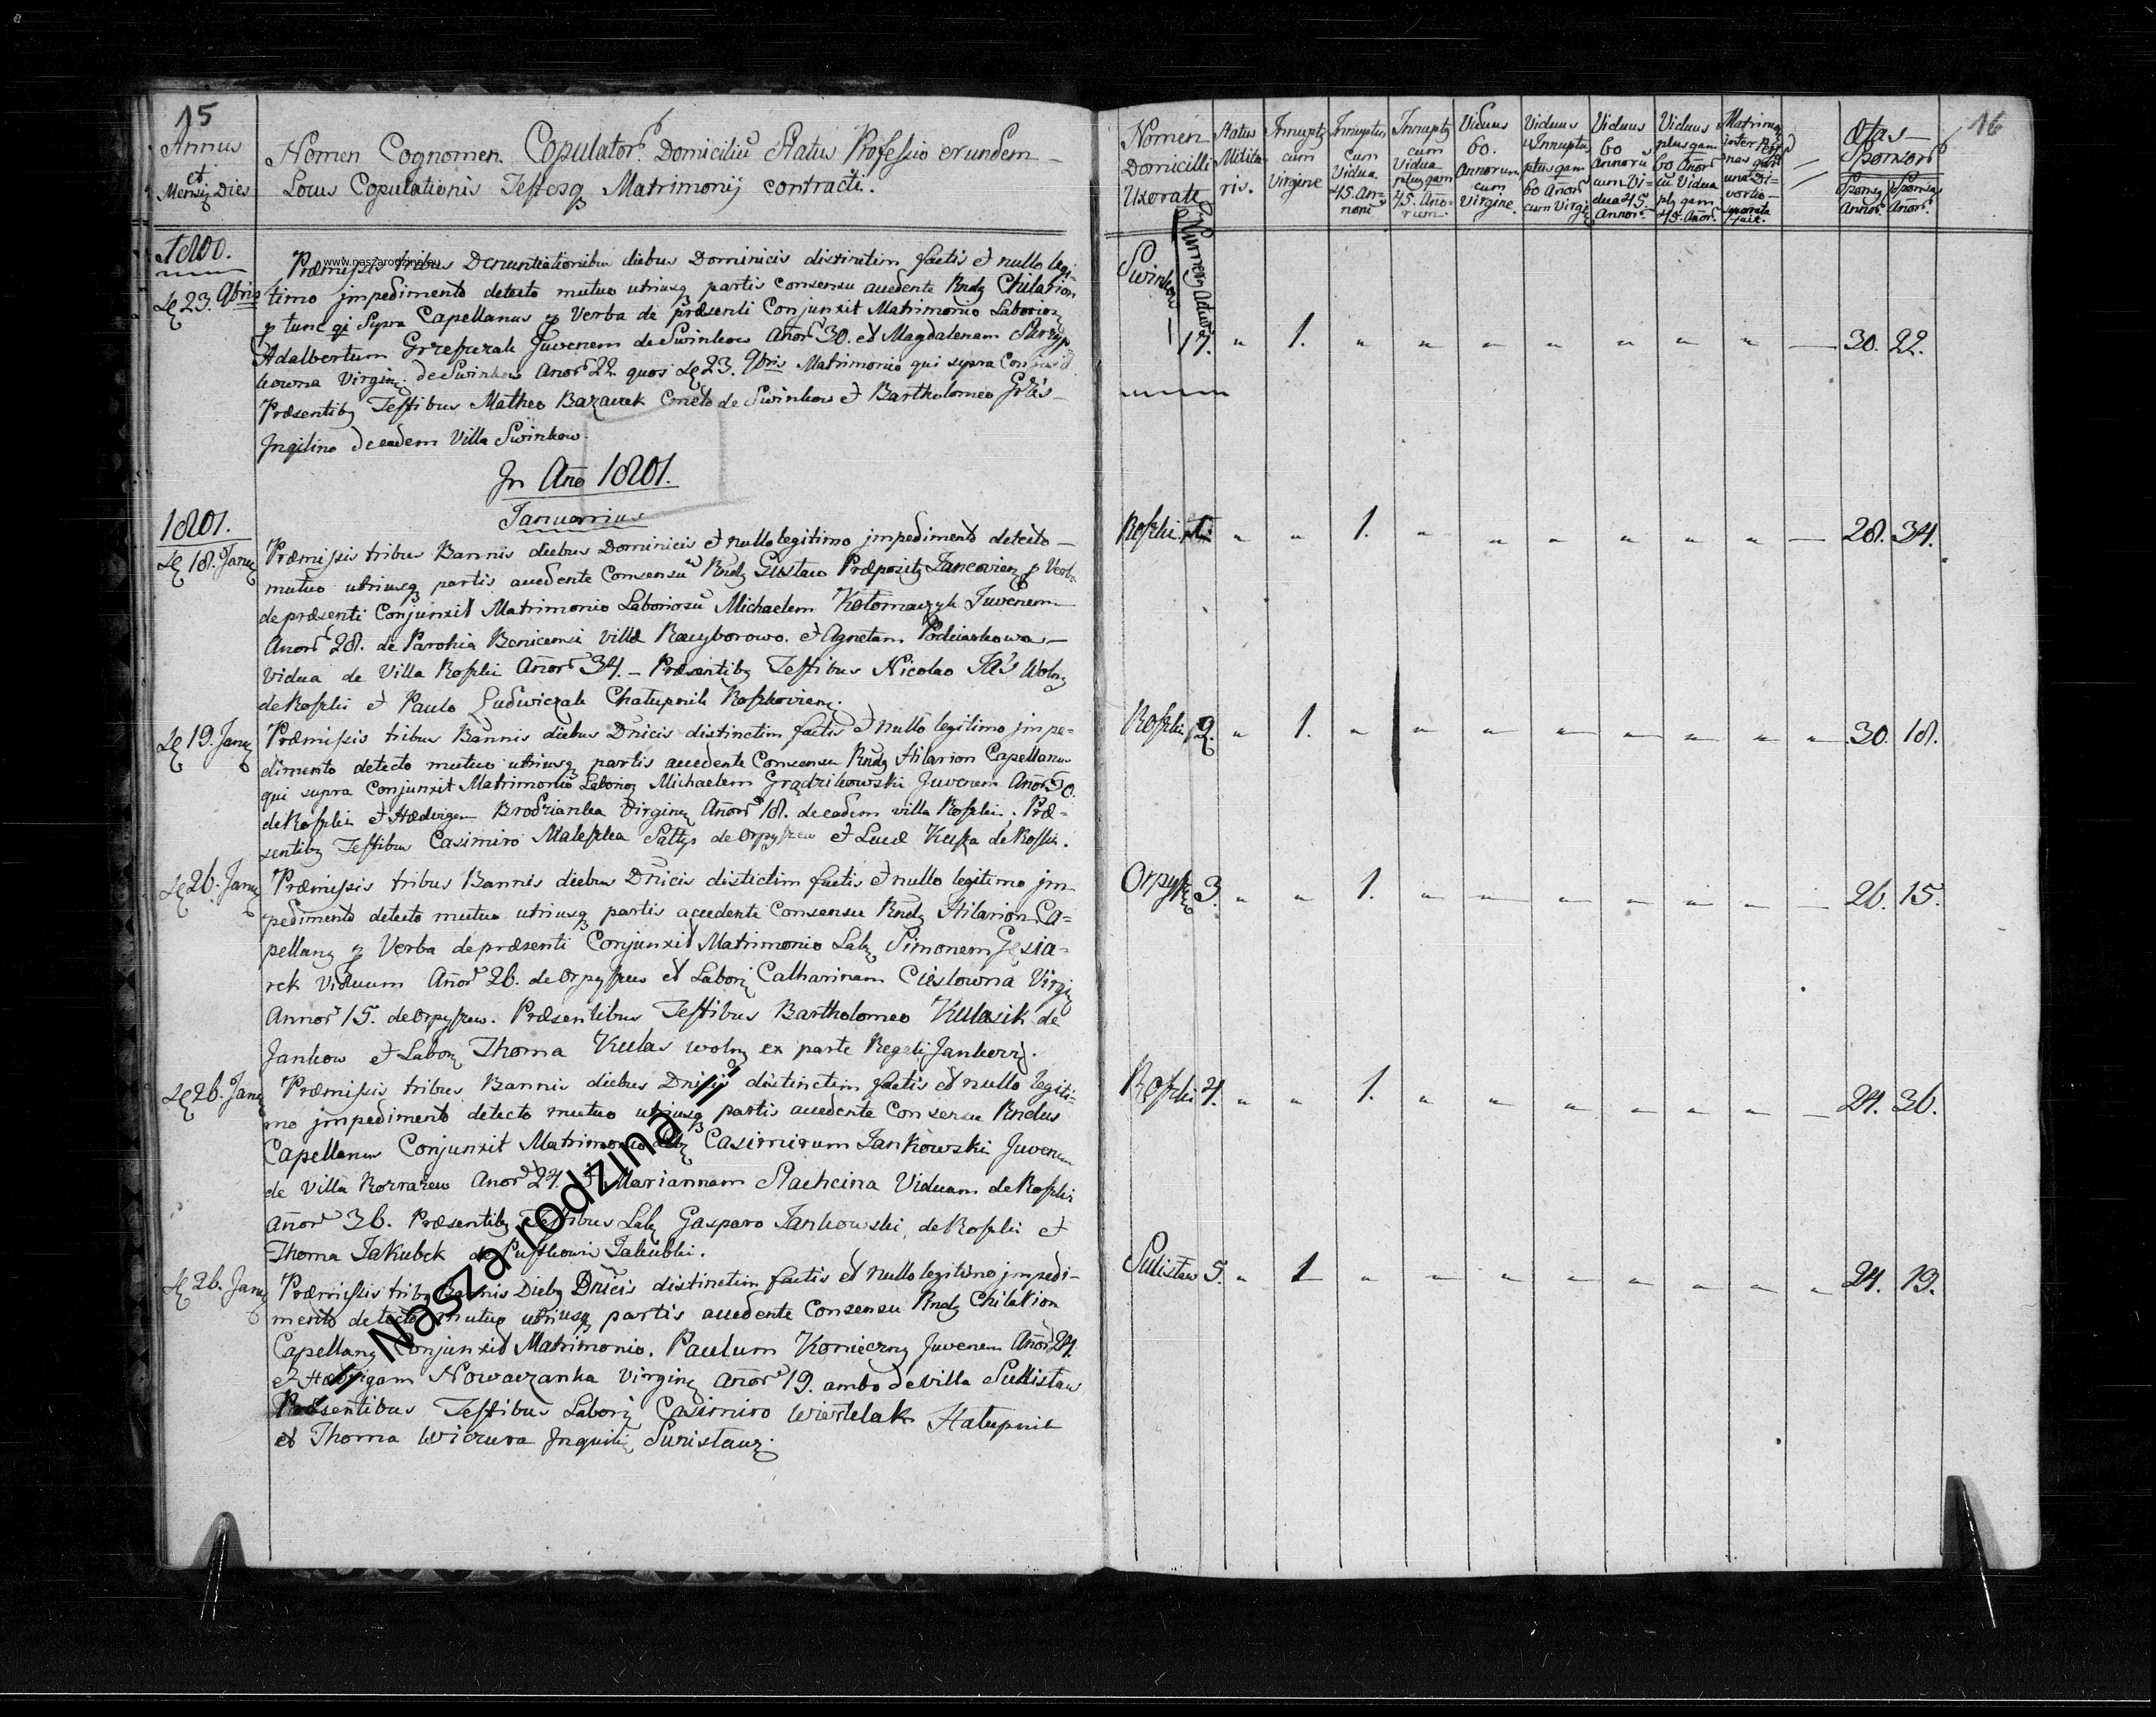 15
Annus
et
Mensis Dies
Nomen Cognomen Copulator. Domiciliū Status Professio eorundem
Locus Copulationis Testesq Matrimonij contracti.
1800.
www.naszarodzina.eu
23. 9bris
Præmissis tribus Denuntiationibus diebus Dominicis distinctim factis et nullo legi-
timo jmpedimento detecto mutuo utriusq partis consensu accedente Rndq Chilarion
tunc qi Supra Capellanus Verba de præsenti Conjunxit Matrimonio Laborios
Adalbertum Juvenem de Swinkow Anor 30. et Magdalenam
kowna Virgin: de Swinkow Anor 22. quos 23. 9bris Matrimonio qui supra Conjunxit
Præsentibq Testibus Matheo Bazarek Cmeto de Swinkow et Bartholomeo
Jnqilino de eadem Villa Swinkow.
In Año 1801.
Januarius
1801.
18. Janu
Præmissis tribus Bannis diebus Dominicis et nullo legitimo jmpedimento detecto
mutuo utriusq partis accedente Consensu Rndq Gustaw Præpositq Jancovien Verba
de præsenti Conjunxit Matrimonio Laboriosū Michaelem Kołomaczyk Juvenem
Anor 28. de Parohia Benicensi Villæ Raciborowo. et Agnetam
Vidua de Villa Roszki Anor 34. Præsentibq Testibus Nicolao Jaś Wolny
de Roszki et Paulo Ludwiczak Chałupnik Roszkovien:
19. Janu
Præmissis tribus Bannis diebus Dnicis distinctim factis et nullo legitimo jmpe-
dimento detecto mutuo utriusq partis accedente Consensu Rndq Hilarion Capellanus
qui supra Conjunxit Matrimonio Laborios Michaelem Grądzikowski Juvenem Anor 30.
de Roszki et Hædvigem Brodzianka Virgine Anor 18. de eadem villa Roszki. Præ-
sentibq Testibus Casimiro Maleszka Sałtys de Orpyszew et Lucæ de Roszki.
26. Janu
Præmissis tribus Bannis diebus Dnicis distictim factis et nullo legitimo jm-
pedimento detecto mutuo utriusq partis accedente Consensu Rndq Hilarion Ca-
pellanq Verba de præsenti Conjunxit Matrimonio Lab, Simonem Gęsia-
rek Viduum Anor 26. de Orpyszew et Labori Catharinam Cieslowna Virgi
Annor 15. de Orpyszew. Præsentibus Testibus Bartholomeo Kulasik de
Jankow et Labor Thoma Kulas wolny ex parte Regali Jankow.
26. Janu
Præmissis tribus Bannis diebus Dnicis distinctim factis et nullo legiti-
mo jmpedimento detecto mutuo utriusq partis accedente Consensu Rndus
Capellanus Conjunxit Matrimonio Lab Casimirum Jankowski Juvenem
de Villa Rozrazew Anor 24. et Mariannam Stachcina Viduam de Roszki
Anor 36. Præsentibq Testibus Lab Gasparo Jankowski, de Roszki et
Thoma Jakubek de Pustkowi Jakubki.
26. Janu
Præmissis tribq Bannis Diebq Dnicis distinctim factis et nullo legitimo jmpedi-
mento detecto mutuo utriusq partis accedente Consensu Rndq Chilarion
Capellanq Conjunxit Matrimonio. Paulum Konieczny Juvenem Anor 24.
et Hædvigam Nowaczanka Virgine Anor 19. ambo de villa Sulistaw
Præsentibus Testibus Labori Casimiro Wiertelak Hałupnik
et Thoma Wiczura Jnquili, Sulistaw:
= Nasza rodzina =
16
Nomen
Domicilii
Uxorate
Numerq Actuum
Status
Milita-
ris.
Innuptq
cum
Virgine
Innuptus
cum
Vidua
45. An-
norū
Innuptq
cum
Vidua
plusqam
45. Año-
rum.
Viduus
60.
Annorum
cum
Virgine.
Viduus
Innuptus
plusqam
60 Añor
cum Virgi
Viduus
60
Annorū
cum Vi-
dua 45.
Annor.
Viduus
plusqam
60 Añor
cū Vidua
plq qam
45. Añor.
Matrimo
inter
nas qarū
una Di-
vortio
separata
fuit.
Ætas
Sponsor
Sponsq Annor. Sponsæ Añor.
Swinkow 17. " 1. " " " " " " " — 30. 22.
Roszki 1. " " 1. " " " " " " — 28. 34.
Roszki 2. " 1. " " " " " " " " 30. 18.
Orpysze 3. " " 1. " — " " " " — 26. 15.
Roszki 4. " " 1. " " " " " " — 24. 36.
Sulistaw 5. " 1 " " " " " " " " 24. 19.